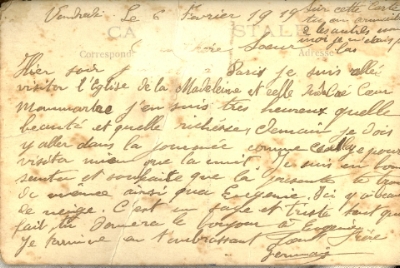 Vendredi Le 6 Février 1919
Sur cette Carte
CA STALE
Correspond Adresse
Chère Soeur
Hier soir Paris je suis allé
visiter l'Eglise de la Madeleine et celle Coeur
Monmartre j'en suis très heureux quelle
beauté et quelle richesses Demain je dois
y aller dans la journée comme cela je pourrai
visiter mieux que la nuit Je suis en bonne
santer et souhaite que la présente te trouve
de même ainsi qua Eugenie. Ici y a beaucoup
de neige. C'est un sale et triste
fait tu donnera le bonjour a Eugenie
Je termine en t'embrassant Ton Frère
Germain